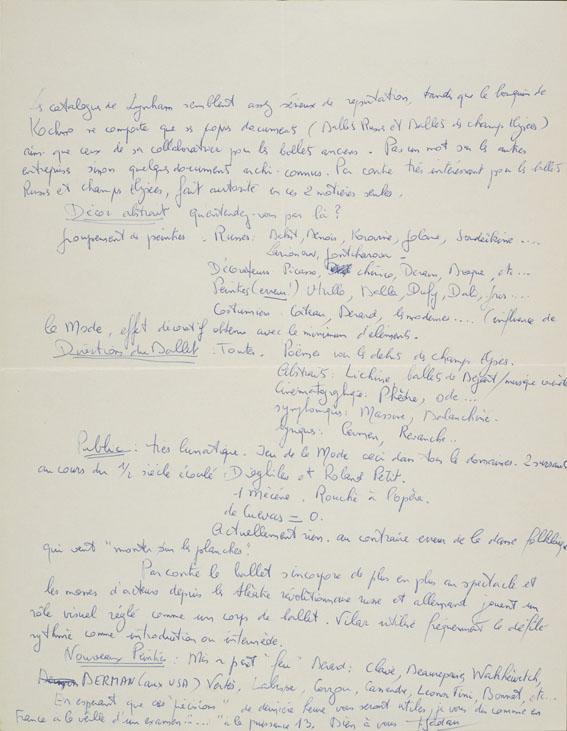 catalogue de Lynham semblent assez sérieux de réputation, tandis que le bouquin de
Kochno ne comporte que ses propres documents (Ballets Russes et Ballets des champs Elysées)
ainsi que ceux de sa collaboratrice pour les ballets anciens. Pas un mot sur les autres
entreprises sinon quelques documents archi-connus. Par contre très intéressant pour les ballets
Russes et champs Elysées, fait autorité en ces 2 matières seules.
Décor abstrait qu'entendez-vous par là?
groupement de peintres. Russes: Bakst, Benois, Korovine, Golovine, Soudeikine ....
Larionow, Gontcharova -
Décorateurs Picasso, chirico, Derain, Braque, etc...
Peintres (erreur!) Utrillo, Balla, Dufy, Dali, gris...
Costumiers: Cocteau, Bérard, les modernes.... (influence de
la Mode, effet décoratif obtenu avec le minimum d'éléments.
Directions du Ballet: Toutes. Poèmes vers le début des champs Elysées.
Abstraits: Lichine, ballets de Béjart/musique concrète
Cinématographique: Phèdre, ode...
symphoniques: Massine, Balanchine.
lyriques: Carmen, Revanche..
Public: très lunatique. Jeu de la Mode ceci dans tous les domaines. 2
au cours du 1/2 siècle écoulé: Diaghilev et Roland Petit.
1 Mécène. Rouché à l'opéra.
de Cuevas = 0.
Actuellement rien. au contraire erreur de la danse folklorique
qui veut "monter sur les planches".
Par contre le ballet s'incorpore de plus en plus au spectacle et
les masses d'acteurs depuis le théâtre révolutionnaire russe et allemand jouent un
rôle visuel réglé comme un corps de ballet. Vilar utilise fréquemment le défilé
rythmé comme introduction ou intermède.
Nouveaux Peintres: Mis à part "feu" Bérard: Clavé, Beaurepaire, Wakhévitch,
BERMAN (aux USA) Vertès, Labisse, Carzou, Cassandre, Leonor Fini, Bonnat, etc...
En espérant que ces "précisions" de dernière heure vous seront utiles, je vous dis comme en
France à la veille d'un examen: ..... "à la puissance 13. Bien à vous